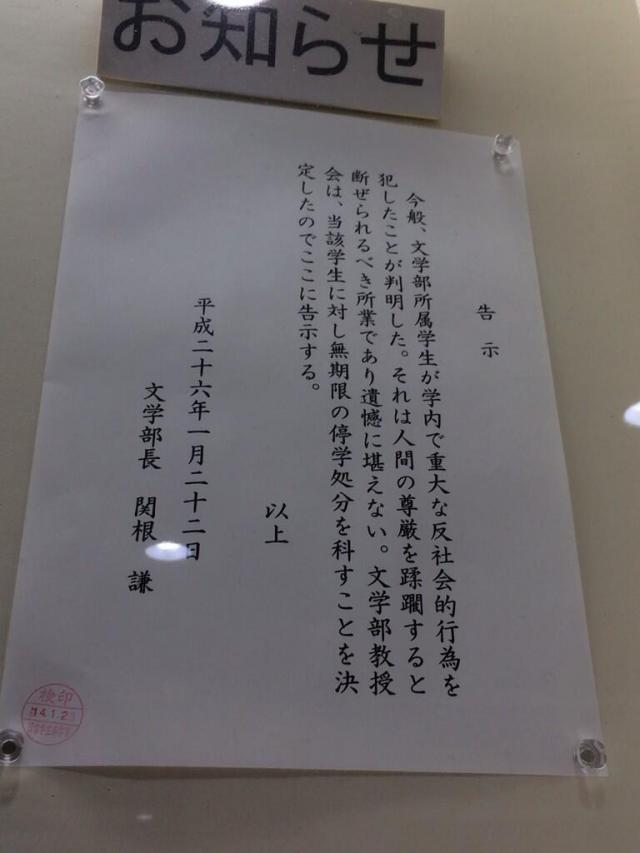 お知らせ
告示
今般、文学部所属学生が学内で重大な反社会的行為を
犯したことが判明した。それは人間の尊厳を蹂躙すると
断ぜられるべき所業であり遺憾に堪えない。文学部教授
会は、当該学生に対し無期限の停学処分を科すことを決
定したのでここに告示する。
以上
平成二十六年一月二十二日
文学部長 関根 謙
検印